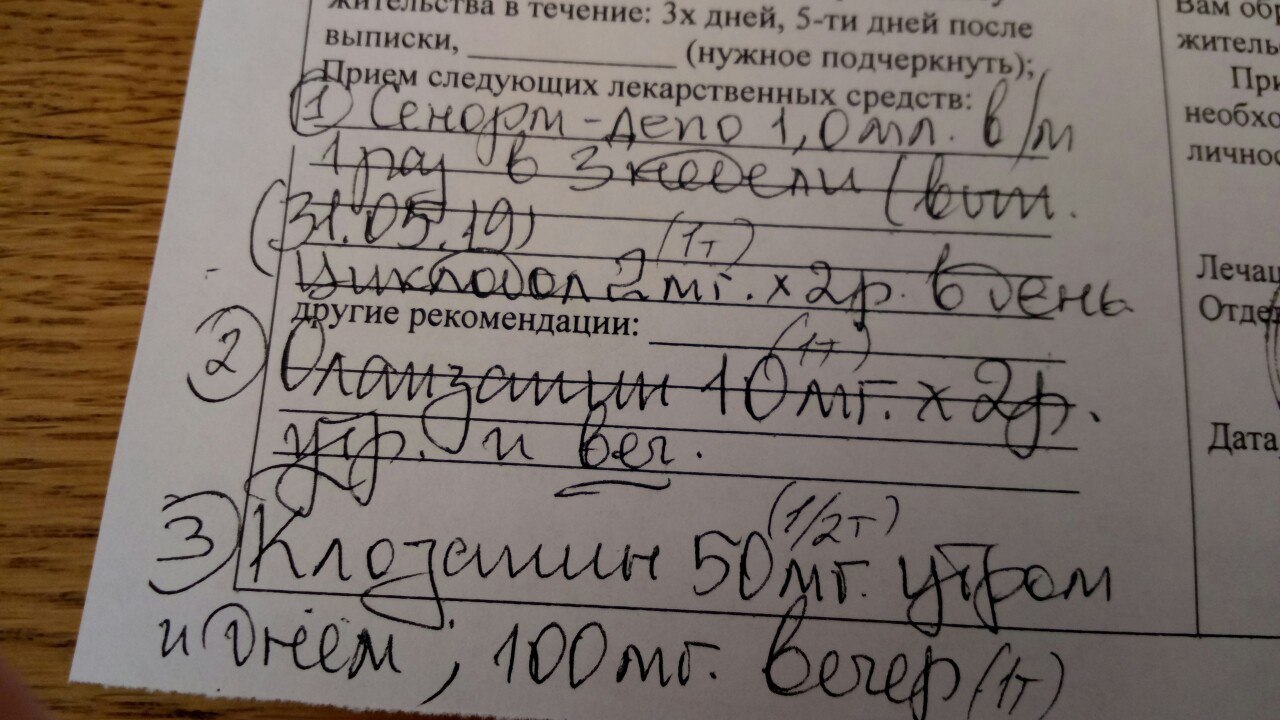 жительства в течение: 3х дней, 5-ти дней после
выписки, ____________ (нужное подчеркнуть);
Прием следующих лекарственных средств:
① Сенорм-депо 1,0 мл. в/м
1 раз в 3 недели (вып.
(31.05.19) (1т)
Циклодол 2 мг. x 2р. в день
другие рекомендации:
(1т)
② Оланзапин 10 мг. x 2р.
утр. и веч.
(1/2т)
③ Клозапин 50 мг. утром
и днём, 100 мг. вечер (1т)
Вам
житель
При
необхо
личнос
Лечащ
Отде
Дата